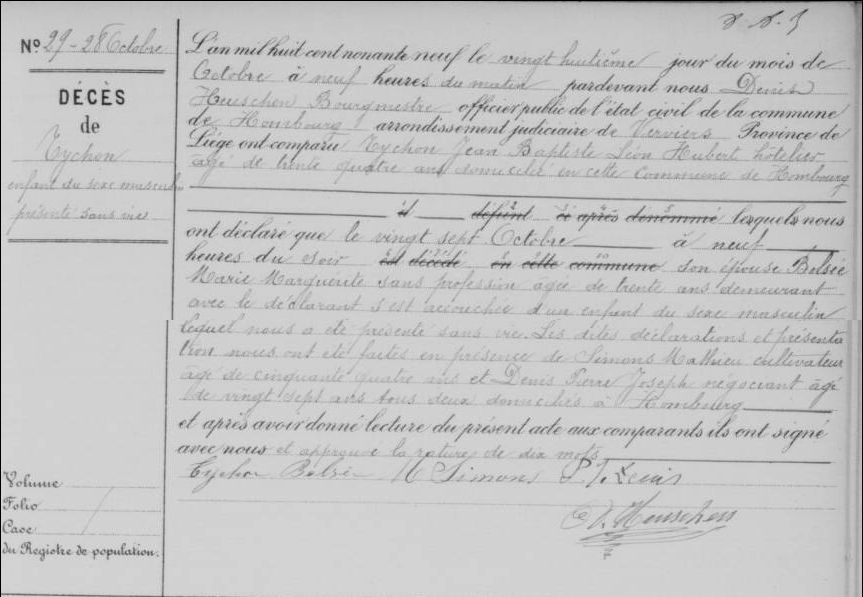 N° 29 - 28 Octobre
DÉCÈS
de
Tychon
enfant du sexe masculin
présenté sans vie
L'an mil huit cent nonante neuf le vingt huitième jour du mois de
Octobre à neuf heures du matin pardevant nous Denis
Heuschen Bourgmestre officier public de l'état civil de la commune
de Hombourg arrondissement judiciaire de Verviers Province de
Liége ont comparu Tychon Jean Baptiste Léon Hubert hôtelier
âgé de trente quatre ans domicilié en cette Commune de Hombourg
il défunt ci après dénommé lesquels nous
ont déclaré que le vingt sept Octobre à neuf
heures du soir est décédé en cette commune son épouse Belsée
Marie Marguérite sans profession agée de trente ans demeurant
avec le déclarant s'est accouchée d'un enfant du sexe masculin
lequel nous a été présenté sans vie. Les dites déclarations et présenta
tion nous ont été faites en présence de Simons Mathieu cultivateur
âgé de cinquante quatre ans et Denis Pierre Joseph négociant âgé
de vingt sept ans tous deux domiciliés à Hombourg
et après avoir donné lecture du présent acte aux comparants ils ont signé
avec nous et approuvé la rature de dix mots
Tychon Belsée M Simons P. J. Denis
D. Heuschen
Volume
Folio
Case
du Registre de population.